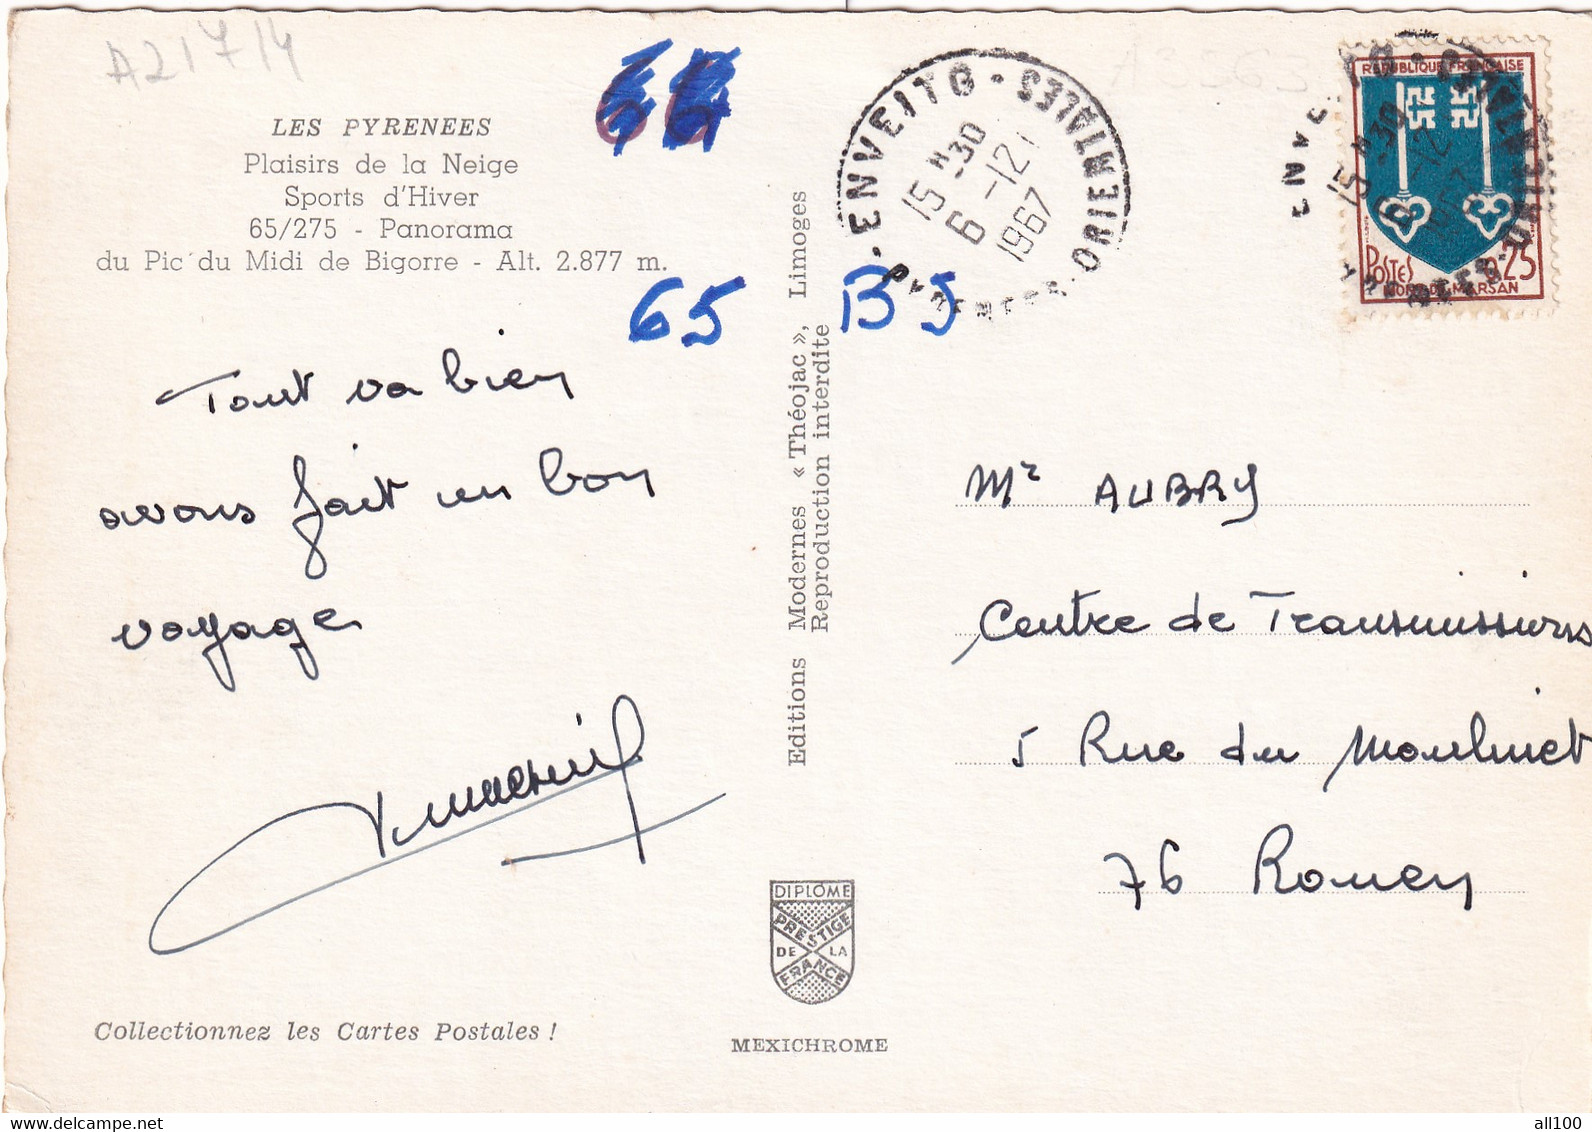 A21714
LES PYRENEES
Plaisirs de la Neige
Sports d'Hiver
65/275 - Panorama
du Pic du Midi de Bigorre - Alt. 2.877 m.
65 B5
Tout va bien
avons fait un bon
voyage
Editions Modernes « Théojac », Limoges
Reproduction interdite
ENVEITG
PYRENEES-ORIENTALES
15 H -30
6 -12
1967
REPUBLIQUE FRANÇAISE
POSTES 0,25
MONT-DE-MARSAN
Mr AUBRY
Centre de Transmissions
5 Rue du Moulinet
76 Rouen
DIPLOME
PRESTIGE
DE LA
FRANCE
Collectionnez les Cartes Postales !
MEXICHROME
all100